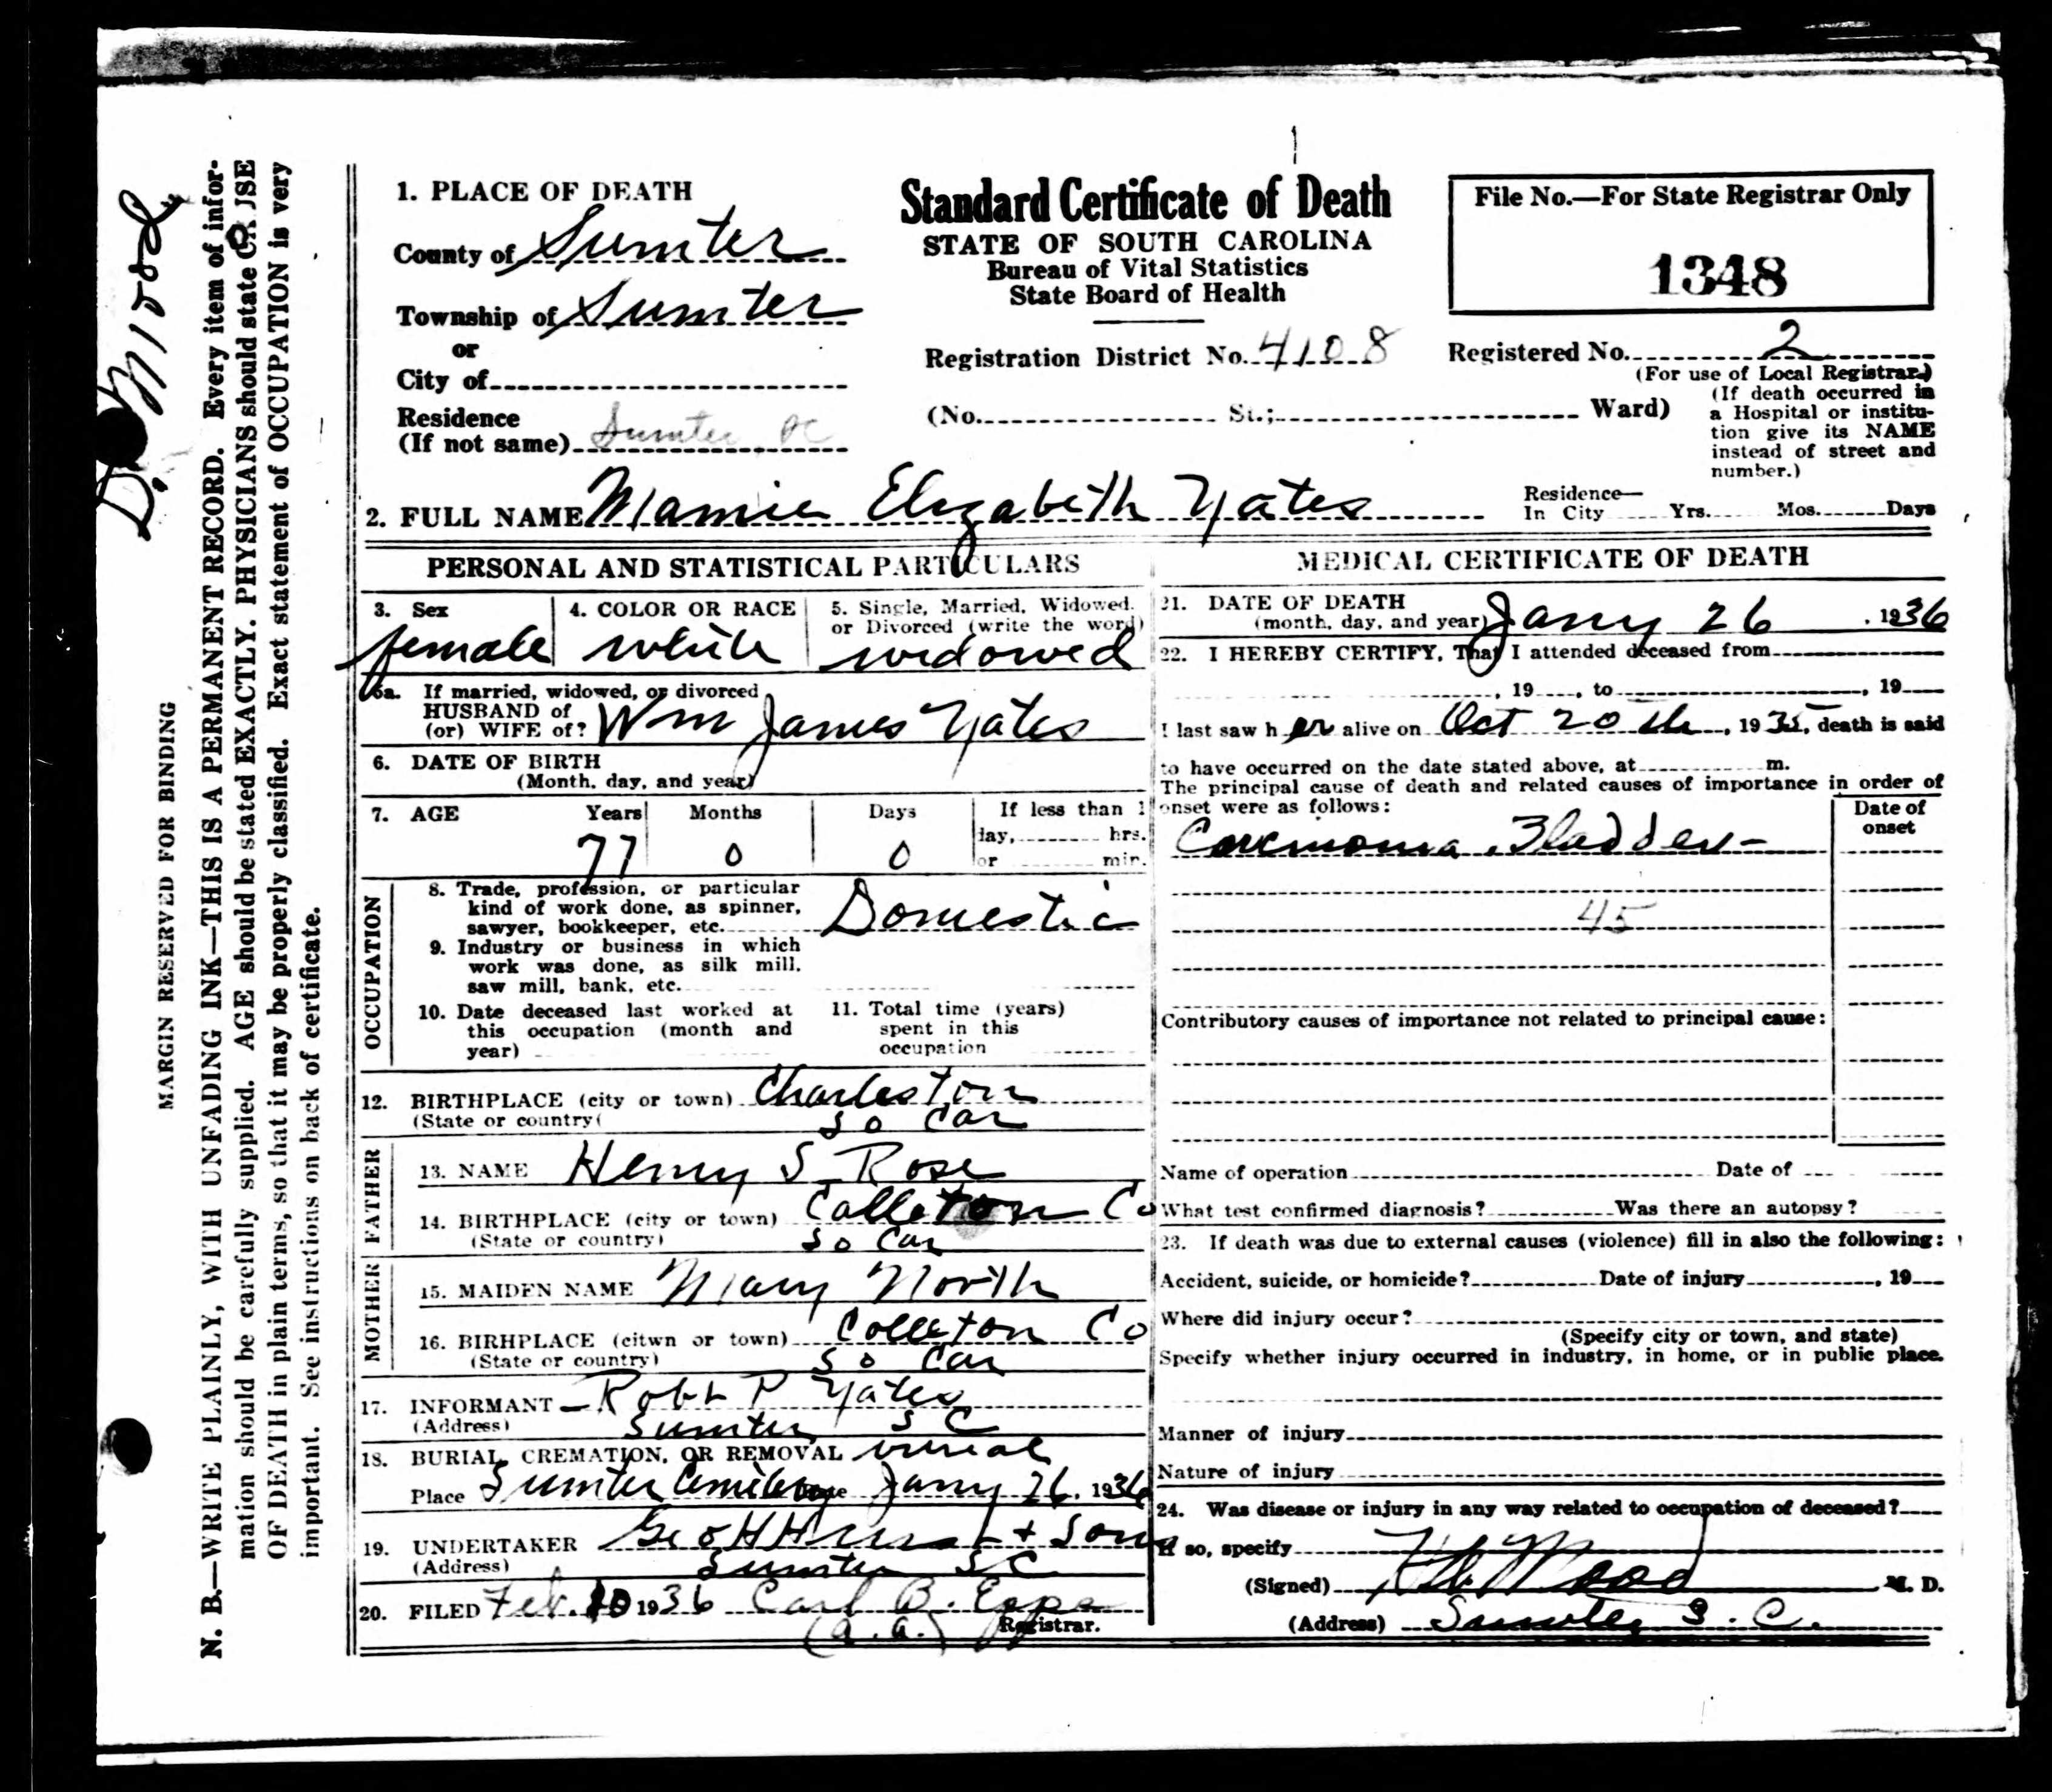 1. PLACE OF DEATH
County of Sumter
Township of Sumter
or
City of
Residence
(If not same) Sumter SC
Standard Certificate of Death
STATE OF SOUTH CAROLINA
Bureau of Vital Statistics
State Board of Health
Registration District No. 4108
(No. St.; Ward)
File No.—For State Registrar Only
1348
Registered No. 2
(For use of Local Registrar.)
(If death occurred in
a Hospital or institu-
tion give its NAME
instead of street and
number.)
2. FULL NAME Mamie Elizabeth Yates
Residence—
In City Yrs. Mos. Days
PERSONAL AND STATISTICAL PARTICULARS
3. Sex
female
4. COLOR OR RACE
white
5. Single, Married, Widowed,
or Divorced (write the word)
widowed
5a. If married, widowed, or divorced
HUSBAND of
(or) WIFE of? Wm James Yates
6. DATE OF BIRTH
(Month, day, and year)
7. AGE Years Months Days If less than 1
day, hrs.
77 0 0 or min.
OCCUPATION
8. Trade, profession, or particular
kind of work done, as spinner,
sawyer, bookkeeper, etc. Domestic
9. Industry or business in which
work was done, as silk mill,
saw mill, bank, etc.
10. Date deceased last worked at
this occupation (month and
year)
11. Total time (years)
spent in this
occupation
12. BIRTHPLACE (city or town) Charleston
(State or country( So Car
FATHER
13. NAME Henry S Rose
14. BIRTHPLACE (city or town) Colleton Co
(State or country) So Car
MOTHER
15. MAIDEN NAME Mary North
16. BIRHPLACE (citwn or town) Colleton Co
(State or country) So Car
17. INFORMANT Robt P Yates
(Address) Sumter S C
18. BURIAL, CREMATION, OR REMOVAL burial
Place Sumter Cemetery Date Jany 26, 1936
19. UNDERTAKER Geo H Hurst & Sons
(Address) Sumter S C
20. FILED Feb. 10 1936 Carl B. Epps
(a.a.) Registrar.
MEDICAL CERTIFICATE OF DEATH
21. DATE OF DEATH
(month, day, and year) Jany 26, 1936
22. I HEREBY CERTIFY, That I attended deceased from
, 19 , to , 19
I last saw h er alive on Oct 20th, 1935, death is said
to have occurred on the date stated above, at m.
The principal cause of death and related causes of importance in order of
onset were as follows:
Date of
onset
Carcinoma Bladder—
45
Contributory causes of importance not related to principal cause:
Name of operation Date of
What test confirmed diagnosis? Was there an autopsy?
23. If death was due to external causes (violence) fill in also the following:
Accident, suicide, or homicide? Date of injury , 19
Where did injury occur?
(Specify city or town, and state)
Specify whether injury occurred in industry, in home, or in public place.
Manner of injury
Nature of injury
24. Was disease or injury in any way related to occupation of deceased?
If so, specify
(Signed) Mood M. D.
(Address) Sumter S. C.
Dr Mood
MARGIN RESERVED FOR BINDING
N. B.—WRITE PLAINLY, WITH UNFADING INK—THIS IS A PERMANENT RECORD. Every item of infor-
mation should be carefully supplied. AGE should be stated EXACTLY. PHYSICIANS should state
OF DEATH in plain terms, so that it may be properly classified. Exact statement of OCCUPATION is very
important. See instructions on back of certificate.